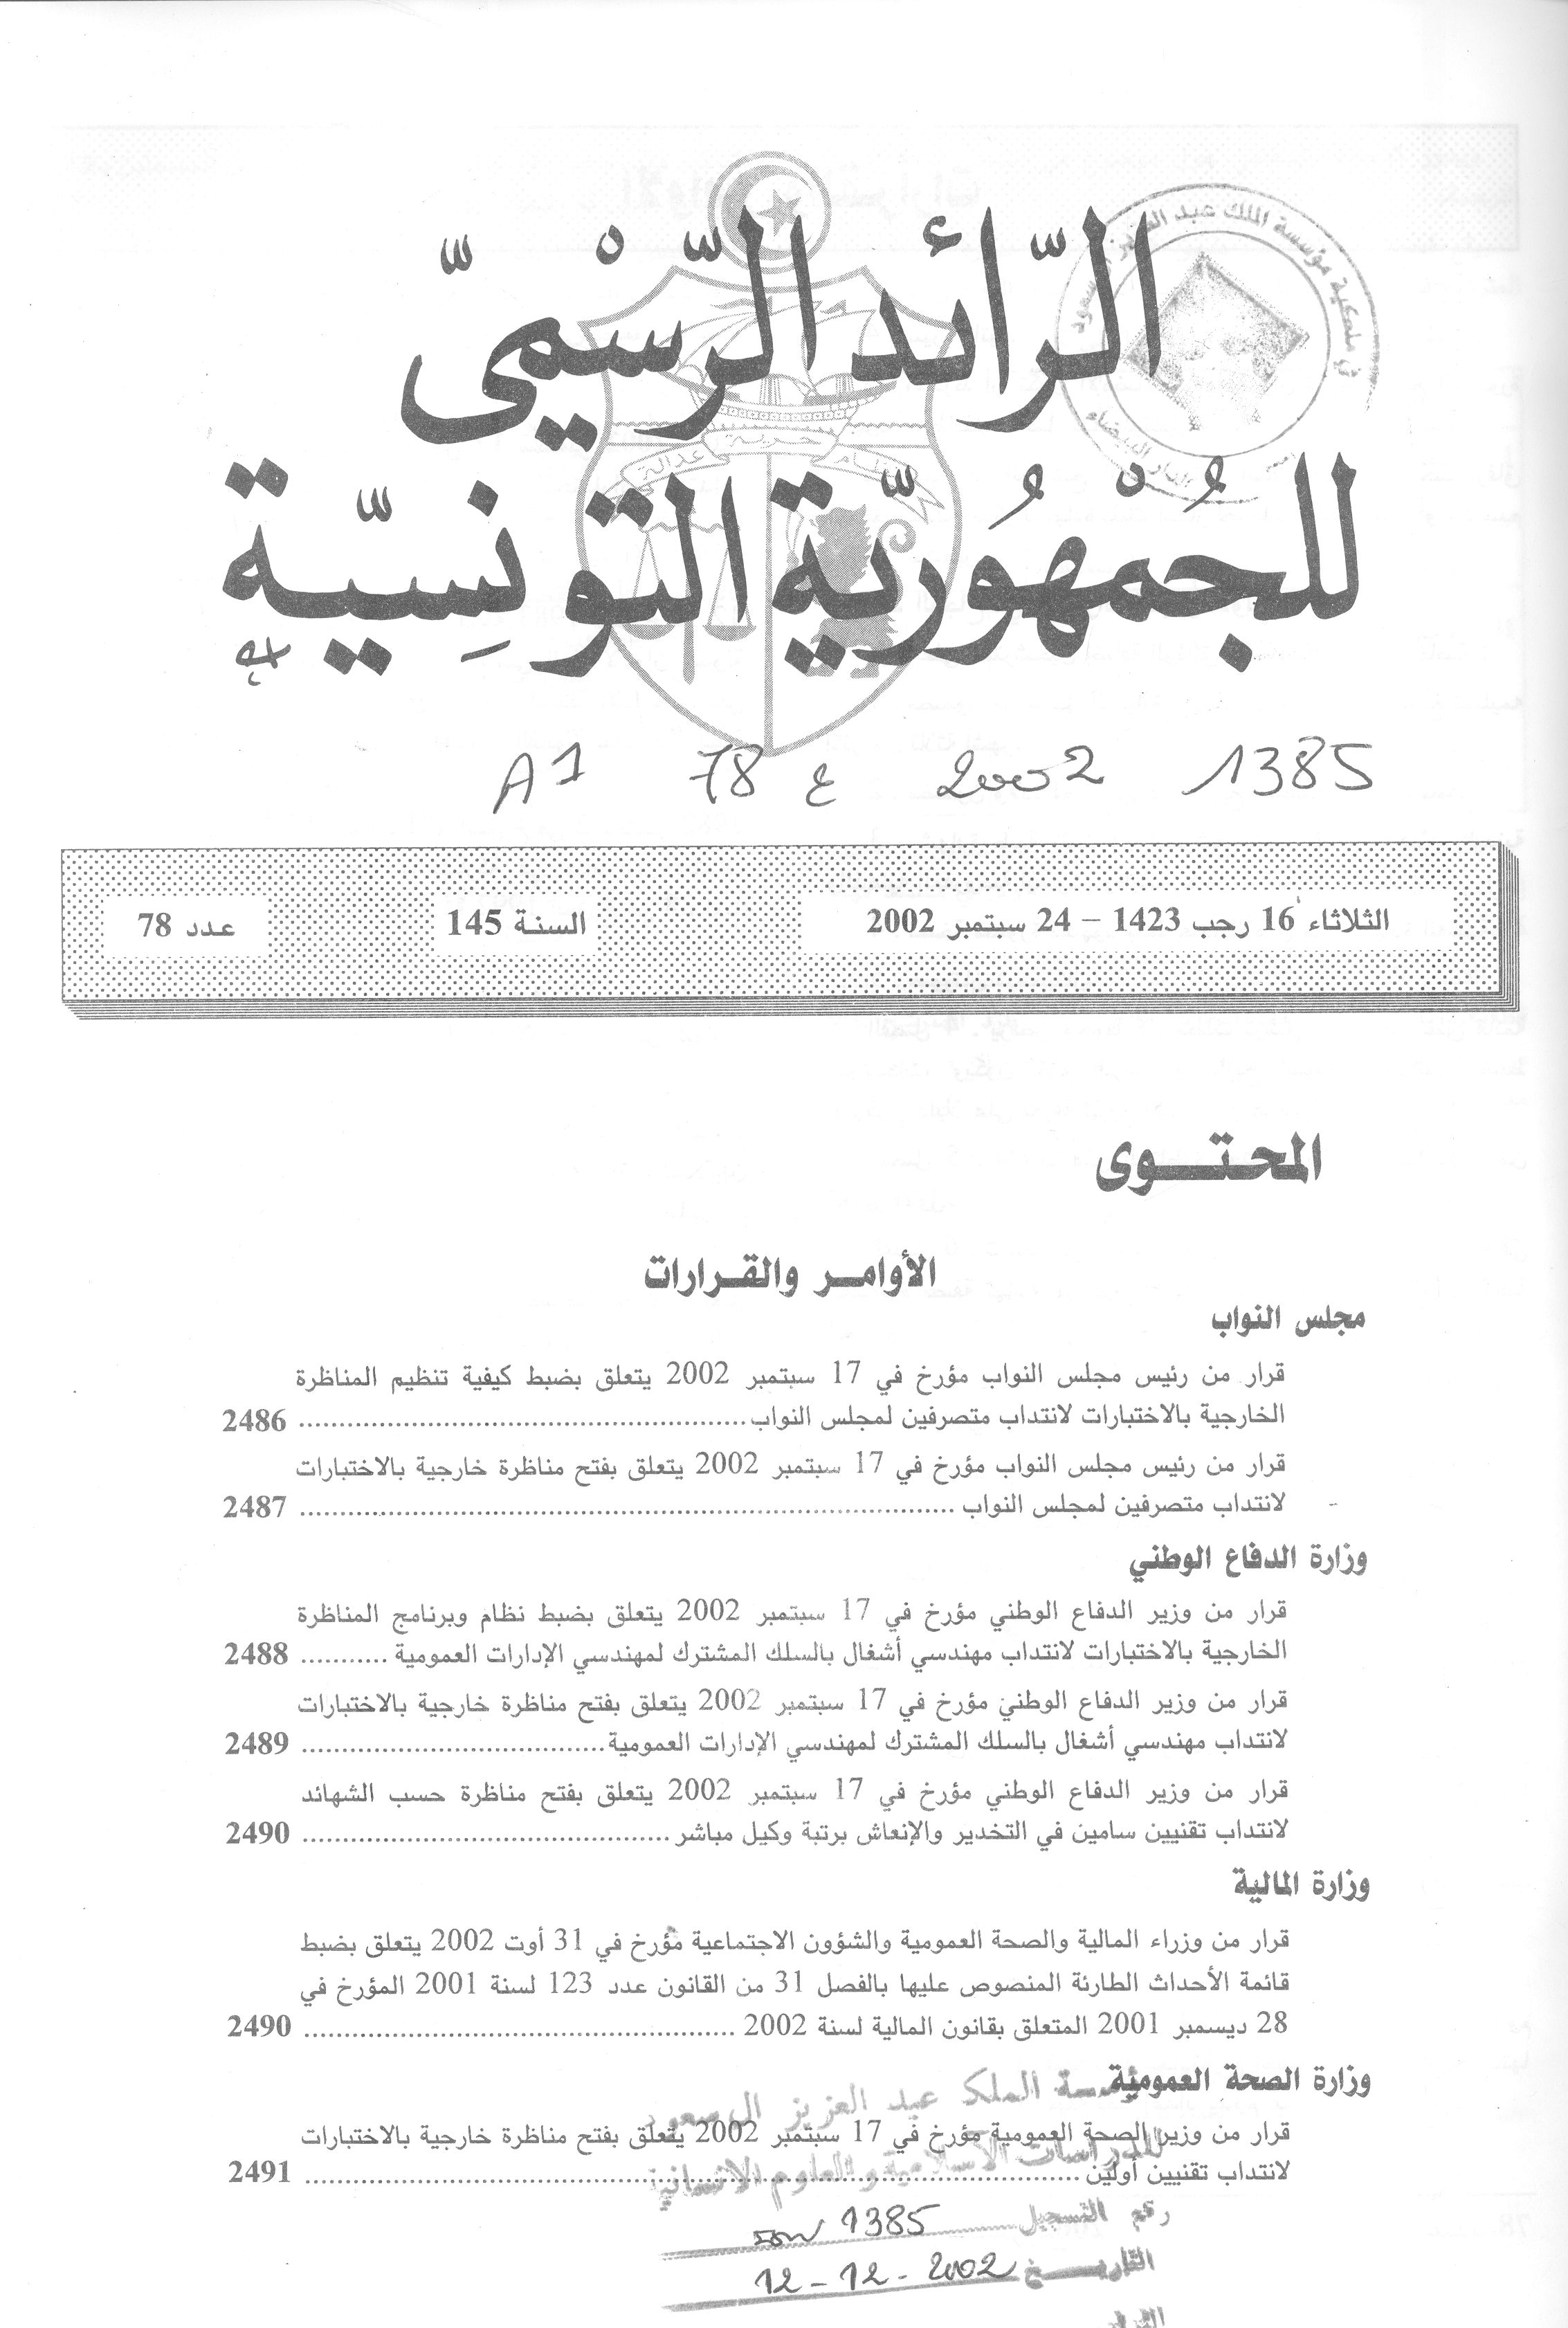 الرّائد الرّسْميّ
للجُمْهُوريّة التّونِسيّة
حرية
نظام
عدالة
ملكية مؤسسة الملك عبد العزيز آل سعود
الدار البيضاء
A1 78 ع 2002 1385
الثلاثاء 16 رجب 1423 – 24 سبتمبر 2002
السنة 145
عدد 78
المحتـــوى
الأوامـر والقـرارات
مجلس النواب
قرار من رئيس مجلس النواب مؤرخ في 17 سبتمبر 2002 يتعلق بضبط كيفية تنظيم المناظرة
الخارجية بالاختبارات لانتداب متصرفين لمجلس النواب ........ 2486
قرار من رئيس مجلس النواب مؤرخ في 17 سبتمبر 2002 يتعلق بفتح مناظرة خارجية بالاختبارات
لانتداب متصرفين لمجلس النواب ........ 2487
وزارة الدفاع الوطني
قرار من وزير الدفاع الوطني مؤرخ في 17 سبتمبر 2002 يتعلق بضبط نظام وبرنامج المناظرة
الخارجية بالاختبارات لانتداب مهندسي أشغال بالسلك المشترك لمهندسي الإدارات العمومية ........ 2488
قرار من وزير الدفاع الوطني مؤرخ في 17 سبتمبر 2002 يتعلق بفتح مناظرة خارجية بالاختبارات
لانتداب مهندسي أشغال بالسلك المشترك لمهندسي الإدارات العمومية ........ 2489
قرار من وزير الدفاع الوطني مؤرخ في 17 سبتمبر 2002 يتعلق بفتح مناظرة حسب الشهائد
لانتداب تقنيين سامين في التخدير والإنعاش برتبة وكيل مباشر ........ 2490
وزارة المالية
قرار من وزراء المالية والصحة العمومية والشؤون الاجتماعية مؤرخ في 31 أوت 2002 يتعلق بضبط
قائمة الأحداث الطارئة المنصوص عليها بالفصل 31 من القانون عدد 123 لسنة 2001 المؤرخ في
28 ديسمبر 2001 المتعلق بقانون المالية لسنة 2002 ........ 2490
وزارة الصحة العمومية
مؤسسة الملك عبد العزيز آل سعود
قرار من وزير الصحة العمومية مؤرخ في 17 سبتمبر 2002 يتعلق بفتح مناظرة خارجية بالاختبارات
للدراسات الاسلامية و العلوم الانسانية
لانتداب تقنيين أولين ........ 2491
رقم التسجيل 1385
التاريـــخ 12-12-2002